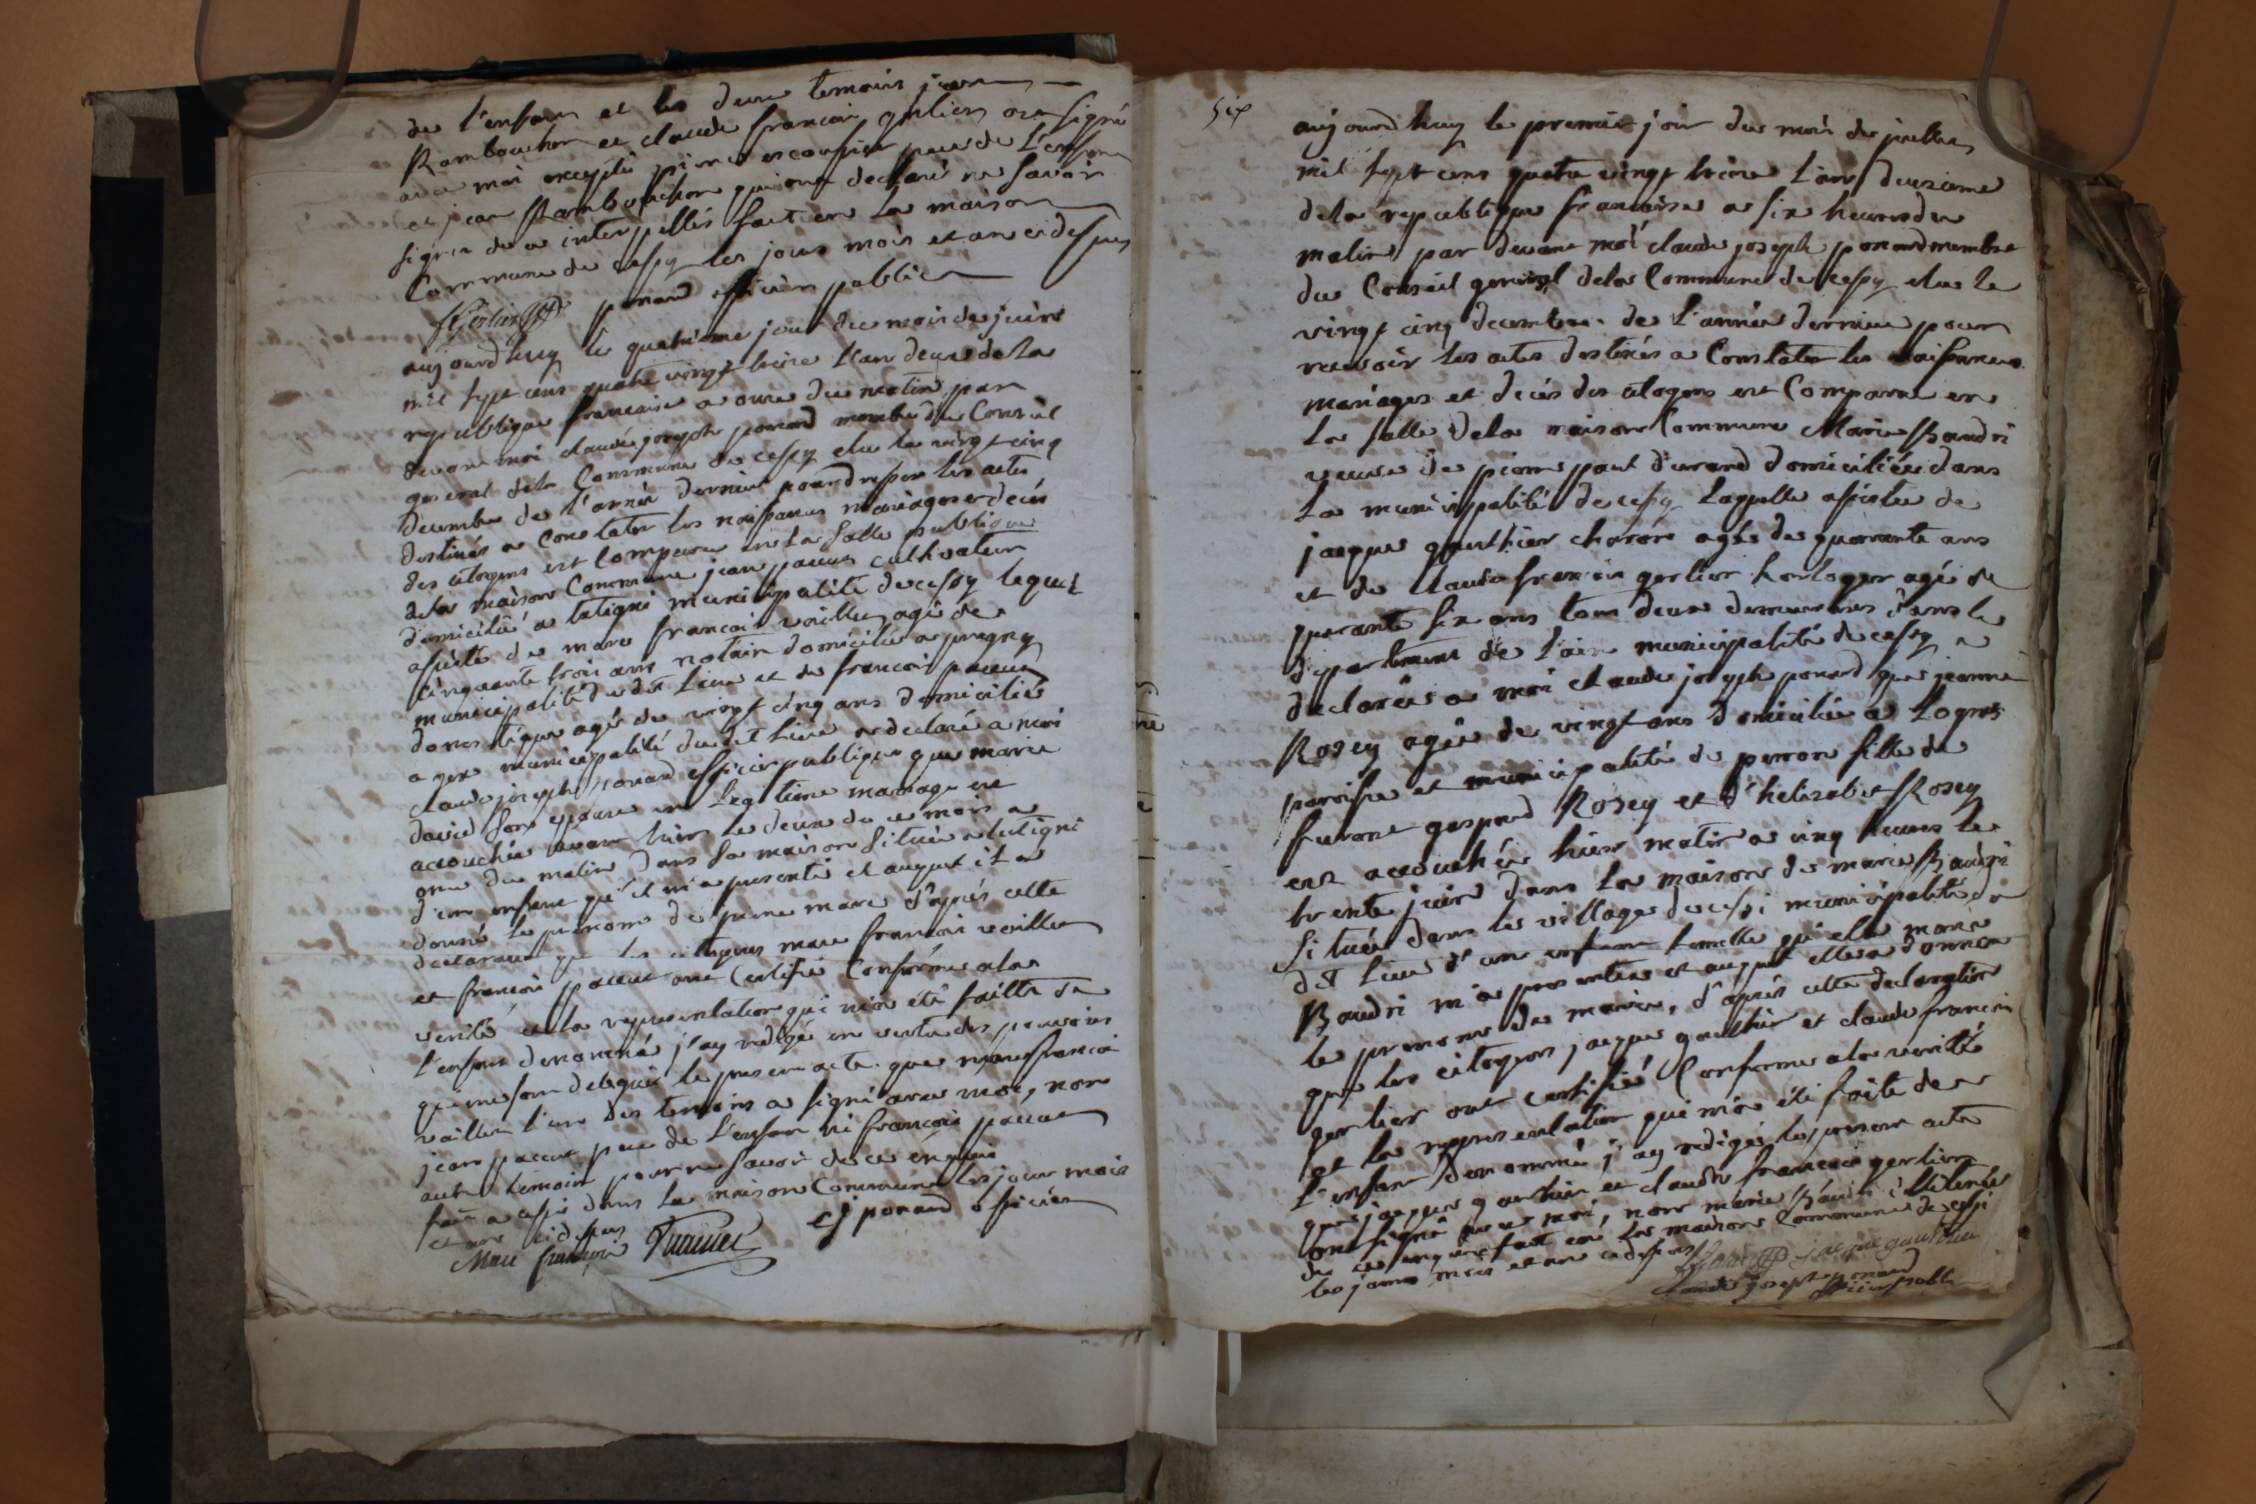 de l'enfant et les deux temoins jean
Rambouchon et claude francoi gerlier ont signé
avec moi excepté pierre escoufier pere de L'enfant
et jean Rambouchon qui ont declaré ne savoir
signer de ce interpellés fait en la maison
Commune de cessy les jours mois et an ci dessus
ponard officier public
aujourd huy le quatrieme jour du mois de juin
mil sept cens quatre vingt treize l'an deux de la
republique francaise a onze du matin par
devant moi claude joseph ponard membre du Conseil
general de la Commune de cessy elu le vingt cinq
decembre de l'année derniere pour dresser les actes
destinés a Constater les naissances mariages et deces
des citoyens est comparu en la salle publique
de la maison Commune jean paccut cultivateur
domicilié a tutigni municipalité de cessy lequel
assisté de marc francoi vaillet agé de
cinquante trois ans notaire domicilié a pregny
municipalité du dit Lieu et de francoi paccut
domestique agé de vingt cinq ans domicilié
a gex municipalité du dit Lieu a declaré a moi
claude joseph ponard officier publique que marie
david son epouse en Legitime mariage est
accouchée avant hier le deux de ce mois a
onze du matin dans sa maison située a tutigni
d'un enfant qu'il m'a presenté et auquel il a
donné le prenom de pierre marc d'après cette
declaration que les citoyens marc francoi vaillet
et francoi paccut ont Certifié Conforme a la
verité et la representation qui m'a eté faitte de
l'enfant denommé j'ay redigé en vertu des pouvoirs
qui me sont delegués le present acte que marc francoi
vaillet l'un des temoins a signé avec moi, non
jean paccut pere de L'enfant ni francoi paccut
autre temoin pour ne savoir de ce enquis
fait a cessi dans la maison Commune les jour mois
et an ci dessus
cj ponard officier
Marc françois
six
aujourd huy le premier jour du mois de juillet
mil sept cens quatre vingt treize L'an deuxieme
de la republique francaise a six heures du
matin par devant moi claude joseph ponard membre
du Conseil general de la Commune de cessy elu le
vingt cinq decembre de L'année derniere pour
recevoir les actes destinés a Constater les naissances
mariages et decés des citoyens est Comparue en
La salle de la maison Commune Marie Baudri
veuve de pierre paul durand domiciliée dans
La municipalité de cessy Laquelle assistée de
jacque gauthier charon agé de quarante ans
et de claude francoi gerlier horloger agé de
quarante six ans tous deux demeurans dans le
departement de L'ain municipalité de cessy a
declarée a moi claude joseph ponard que jeanne
Rosey agée de vingt ans domiciliée a Logras
paroisse et municipalité de peron fille de
furent gaspard Rosey et d'helizabet Rosey
est accouchée hier matin a cinq heures le
trente juin dans La maison de marie Baudri
située dans le village de cessi municipalité du
dit Lieu d'une enfant femelle qu'elle marie
Baudri m'a presentée et auquel elle a donné
le prenom de marie, d'après cette declaration
que les citoyens jacque gauthier et claude francoi
gerlier ont certifié Conforme a la verité
et la representation qui m'a été faite de
L'enfant denommé j'ay redigé le present acte
que jacque gauthier et claude francois gerlier
ont signé avec moi, non marie Baudri illiterée
de ce enquise fait en La maison Commune de cessi
les jours mois et an ci dessus jacque gauthier
claude joseph ponard
officier public